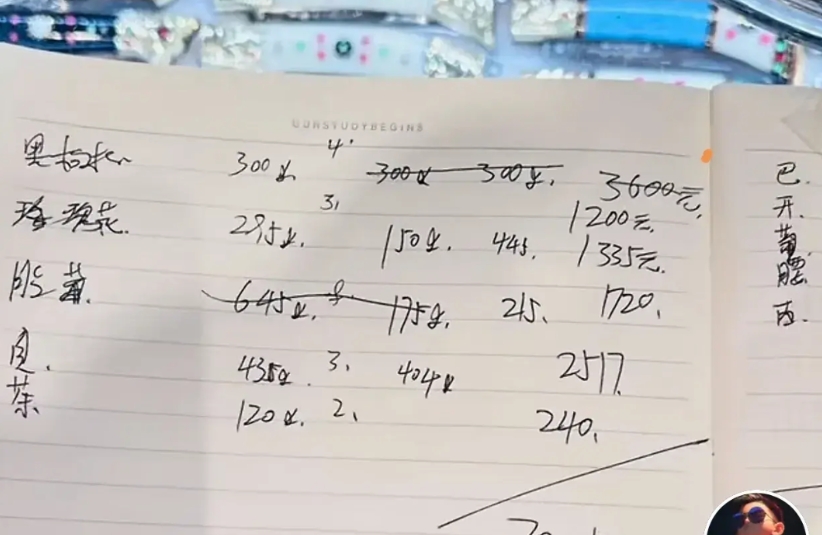 GUNSTUDYBEGINS
黑枸杞 300g 4. 300g 300g. 3600元.
1200元.
玫瑰花. 295g. 3, 150g. 445. 1335元.
645g. 8. 175g. 215. 1720.
435g. 3. 404g 2517.
茶. 120g. 2. 240.
巴.
开.
腰